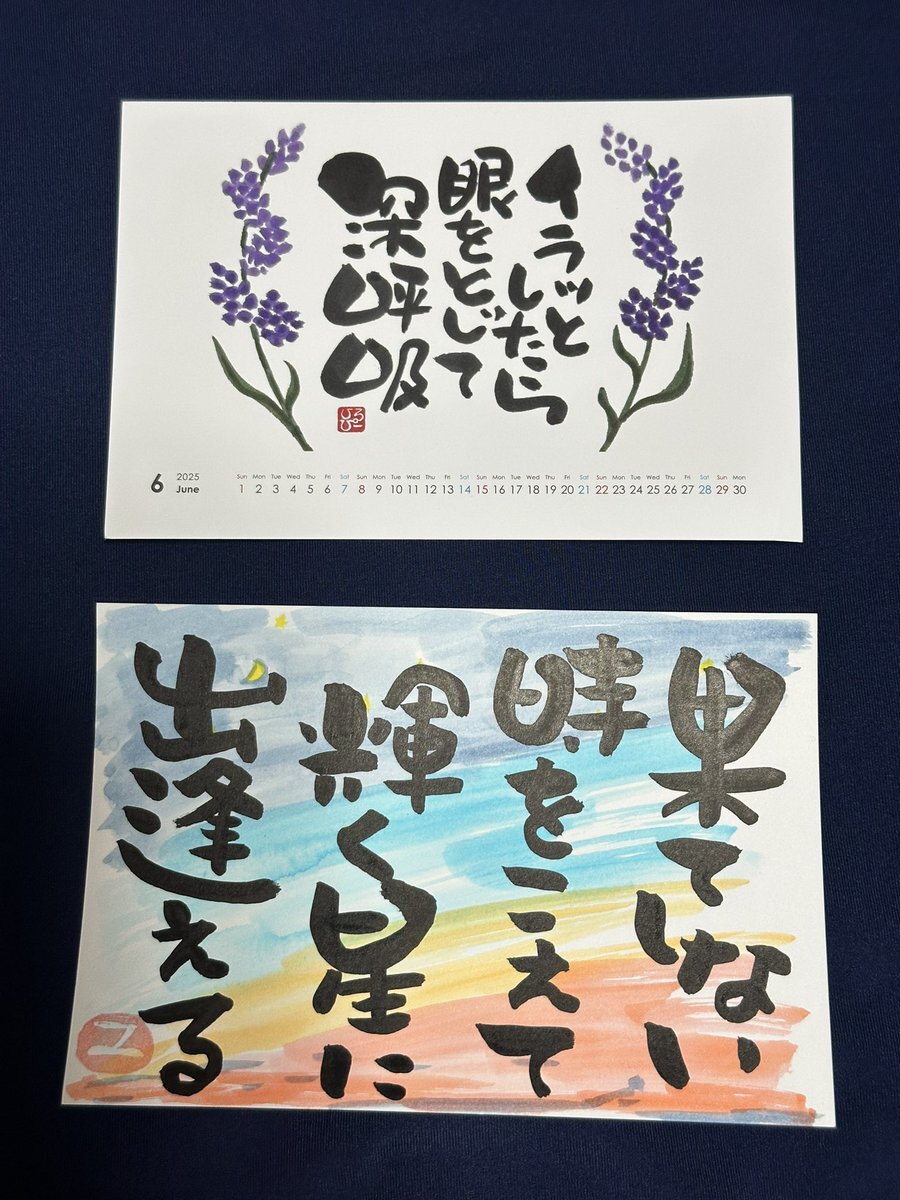 イラッと
したら
眼をとじて
深呼吸
6
2025
June
Sun Mon Tue Wed Thu Fri Sat Sun Mon Tue Wed Thu Fri Sat Sun Mon Tue Wed Thu Fri Sat Sun Mon Tue Wed Thu Fri Sat Sun Mon
1 2 3 4 5 6 7 8 9 10 11 12 13 14 15 16 17 18 19 20 21 22 23 24 25 26 27 28 29 30
果てしない
時をこえて
輝く星に
出逢える